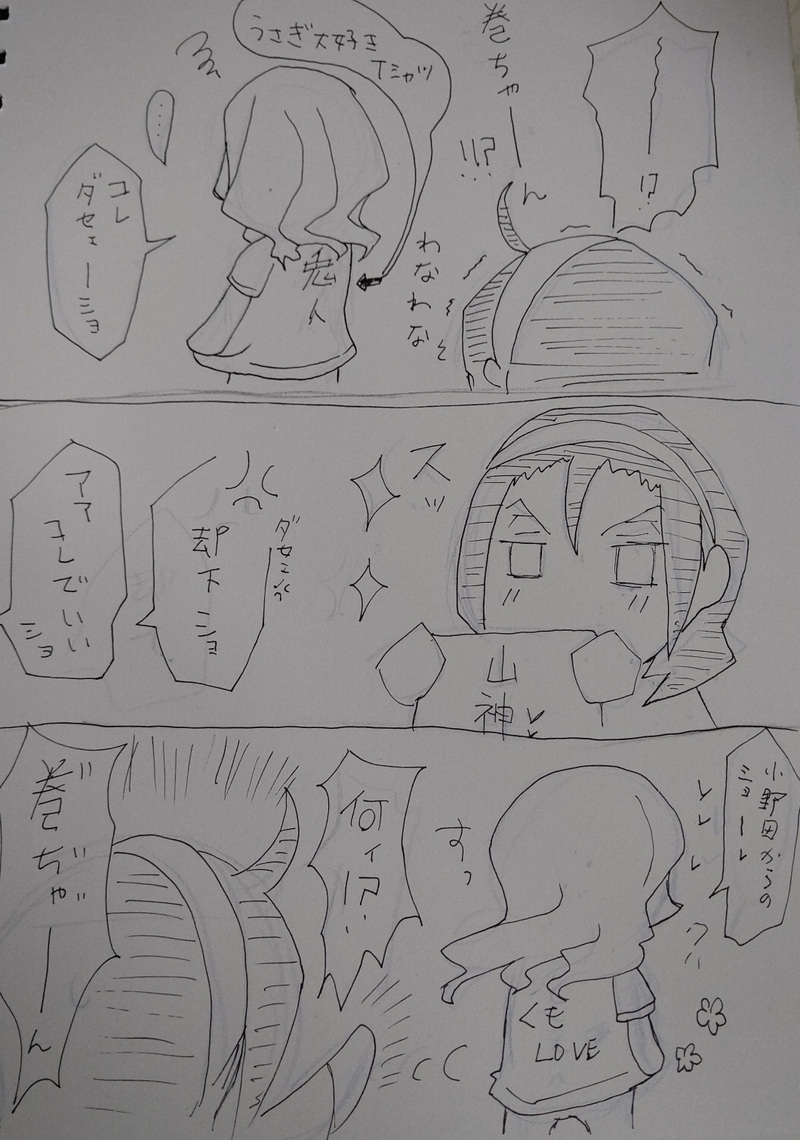 !?
巻ちゃーん
!!?
わなわな
うさぎ大好き
Tシャツ
……
コレ
ダセェーショ
スッ
山
神
ダセェ
却下ショ
アァ
コレでいい
ショ
小野田からの
ショー
すっ
くも
LOVE
何ィ!?
巻ぢゃーん